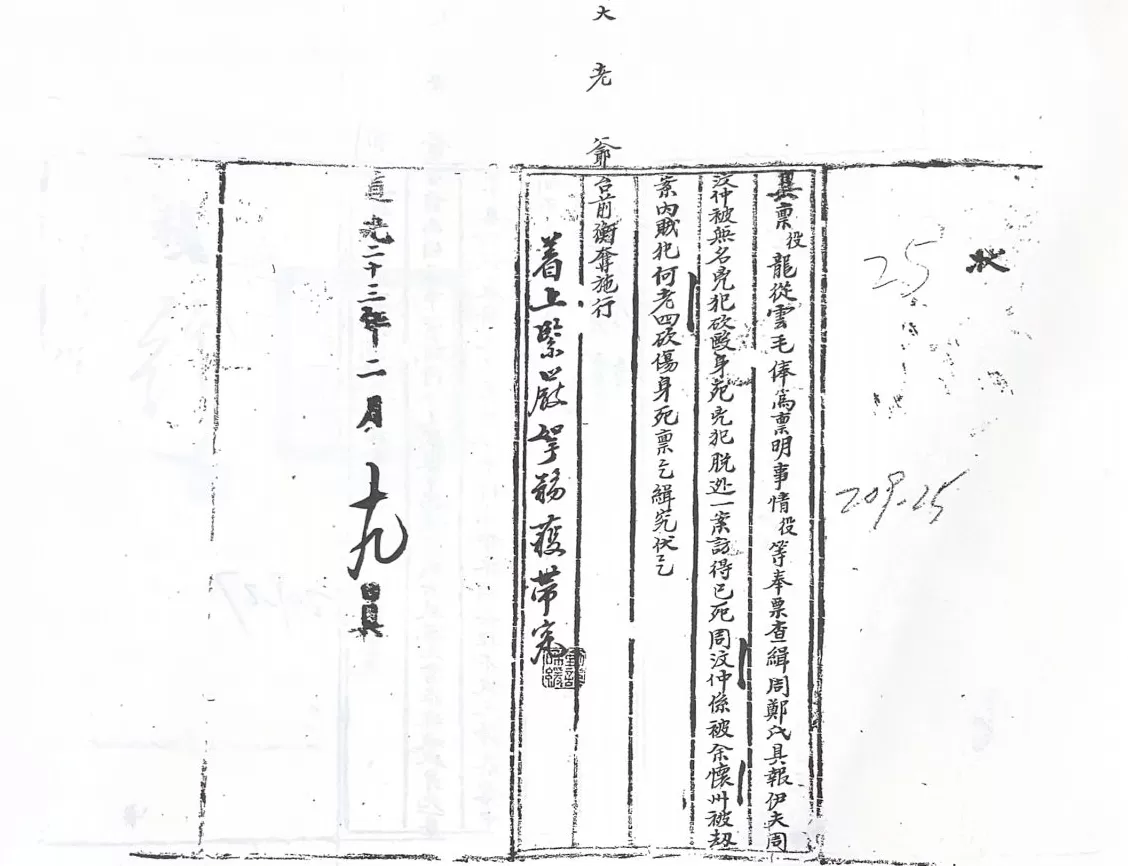 状
25
209-25
具禀役龍從雲毛俸為禀明事情役等奉票查緝周鄭氏具報伊夫周
汶仲被無名兇犯砍毆身死兇犯脱逃一案訪得已死周汶仲係被余懷州被刼
案内賊犯何老四砍傷身死禀乞緝究伏乞
大老爺台前衡奪施行
着上緊嚴拏務獲帶究
道光二十三年二月十九日具